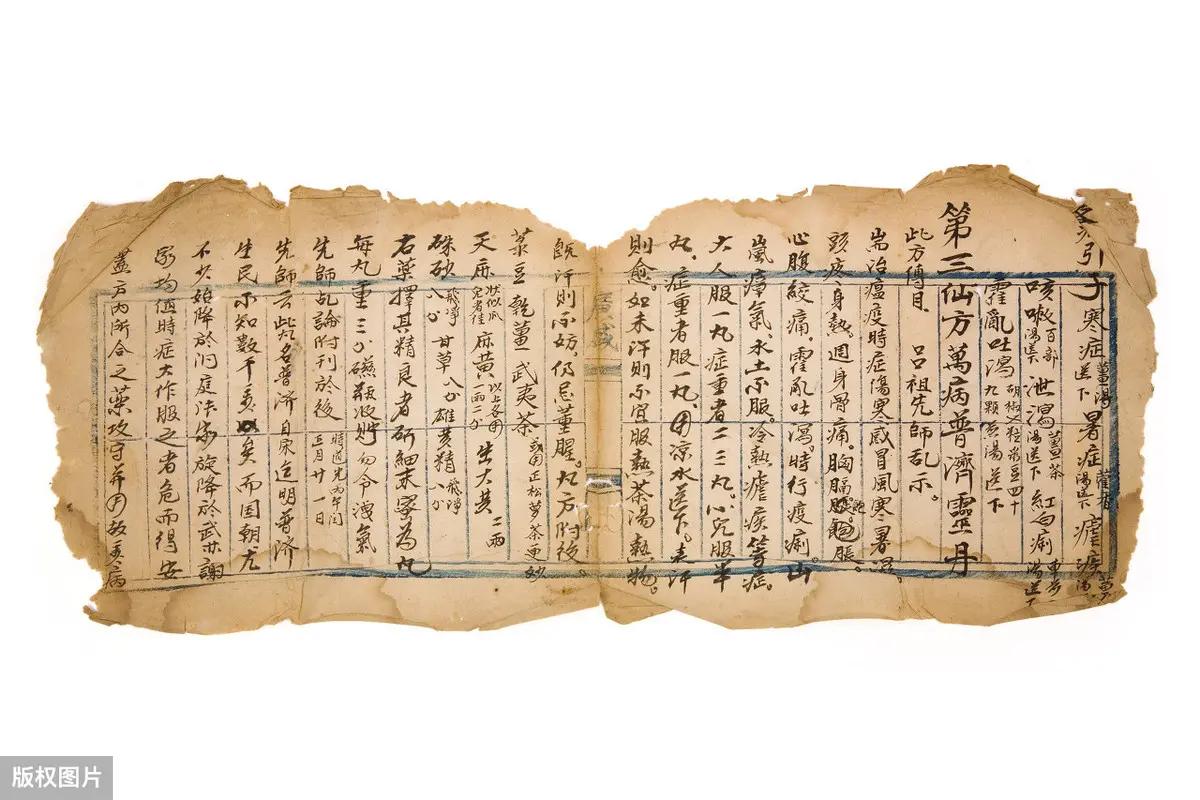 引子 寒症薑湯送下 暑症藿香湯送下 瘧疾
咳嗽百部湯送下 泄瀉薑茶湯送下 紅白痢湯送下
霍亂吐瀉胡椒七粒菉豆四十九顆煎湯送下
第三仙方萬病普濟靈丹
此方傳自 呂祖先師乩示。
耑治瘟疫時症傷寒感冒風寒暑濕。
頭疼身熱。週身骨痛。胸膈飽脹。
心腹絞痛。霍乱吐瀉。時行疫痢。山
嵐瘴氣。水土不服。冷熱瘧疾等症。
大人服一丸症重者二三丸。小兒服半
丸。症重者服一丸。用凉水送下。表汗
則愈。如未汗則不宜服熱茶湯熱物。
既汗則不妨。仍忌葷腥。丸方附後。
菉豆 乾薑 武夷茶 或用正松萝茶更妙
天麻 麻黄 以上各用一兩二分 生大黄 二兩
硃砂 飛淨八分 甘草 八分 雄黄精 飛淨八分
右藥擇其精良者研細末蜜為丸
每丸重三分磁瓶收貯勿令洩氣
先師乩論附刊於後 時道光丙午閏五月廿一日
先師云此丸名普濟自唐迄明普濟
生民不知數千万矣而国朝尤
不少始降於洞庭法家旋降於武廿謝
家均值時症大作服之者危而得安
蓋方内所合之藥攻守并用故万病